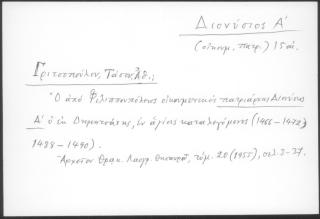 Διονύσιος Α'
(οἰκουμ. πατρ.) 15 αἰ.
Γριτσοπούλου, Τάσου Ἀθ.;
"Ὁ ἀπὸ Φιλιππουπόλεως οἰκουμενικὸς πατριάρχης Διονύσιος
Α' ὁ ἐκ Δημητσάνης, ἐν ἁγίοις καταλεγόμενος (1466-1472,
1488-1490).
Ἀρχεῖον Θρακ. Λαογρ. Θησαυροῦ, τόμ. 20 (1955), σελ. 3-37.